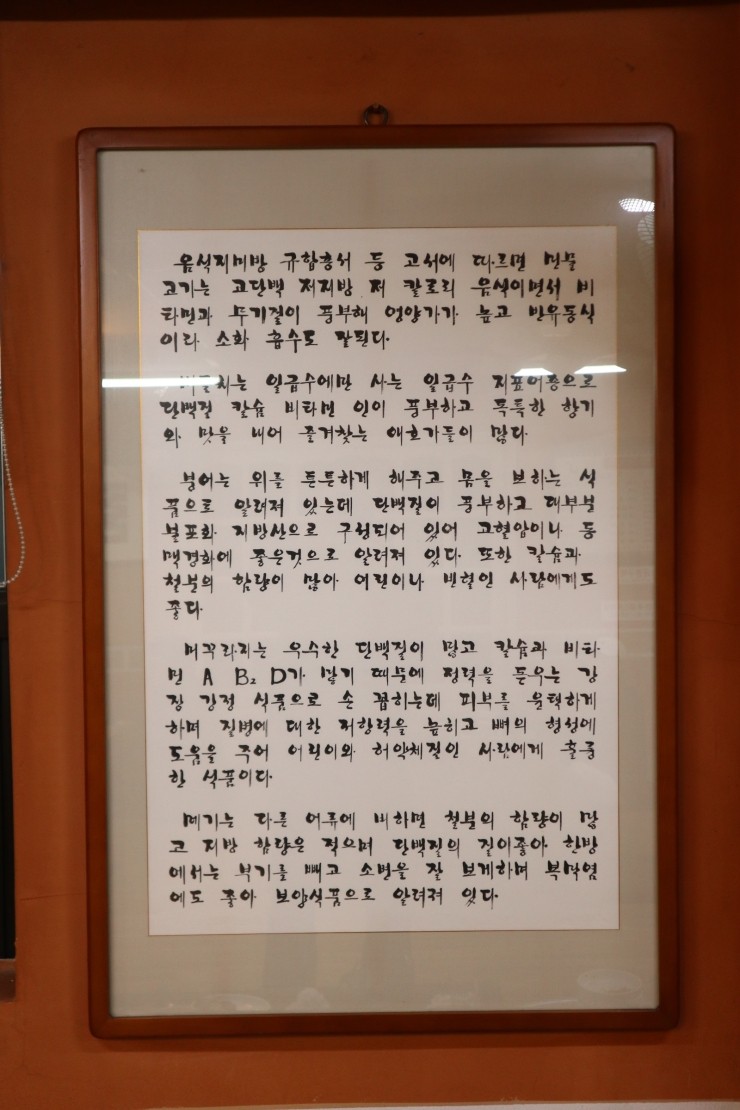 음식지미방 규합총서 등 고서에 따르면 민물
고기는 고단백 저지방 저 칼로리 음식이면서 비
타민과 무기질이 풍부해 영양가가 높고 반유동식
이라 소화 흡수도 잘된다.
일급수에만 사는 일급수 지표어종으로
단백질 칼슘 비타민 인이 풍부하고 독특한 향기
와 맛을 내어 즐겨찾는 애호가들이 많다
붕어는 위를 튼튼하게 해주고 몸을 보하는 식
품으로 알려져 있는데 단백질이 풍부하고 대부분
불포화 지방산으로 구성되어 있어 고혈압이나 동
맥경화에 좋은것으로 알려져 있다. 또한 칼슘과
철분의 함량이 많아 어린이나 빈혈인 사람에게도
좋다
미꾸라지는 우수한 단백질이 많고 칼슘과 비타
민 A B₂ D가 많기 때문에 정력을 돋우는 강
장 강정 식품으로 손 꼽히는데 피부를 윤택하게
하며 질병에 대한 저항력을 높히고 뼈의 형성에
도움을 주어 어린이와 허약체질인 사람에게 훌륭
한 식품이다.
메기는 다른 어류에 비하면 철분의 함량이 많
고 지방 함량은 적으며 단백질의 질이좋아 한방
에서는 부기를 빼고 소변을 잘 보게하며 복막염
에도 좋아 보양식품으로 알려져 있다.